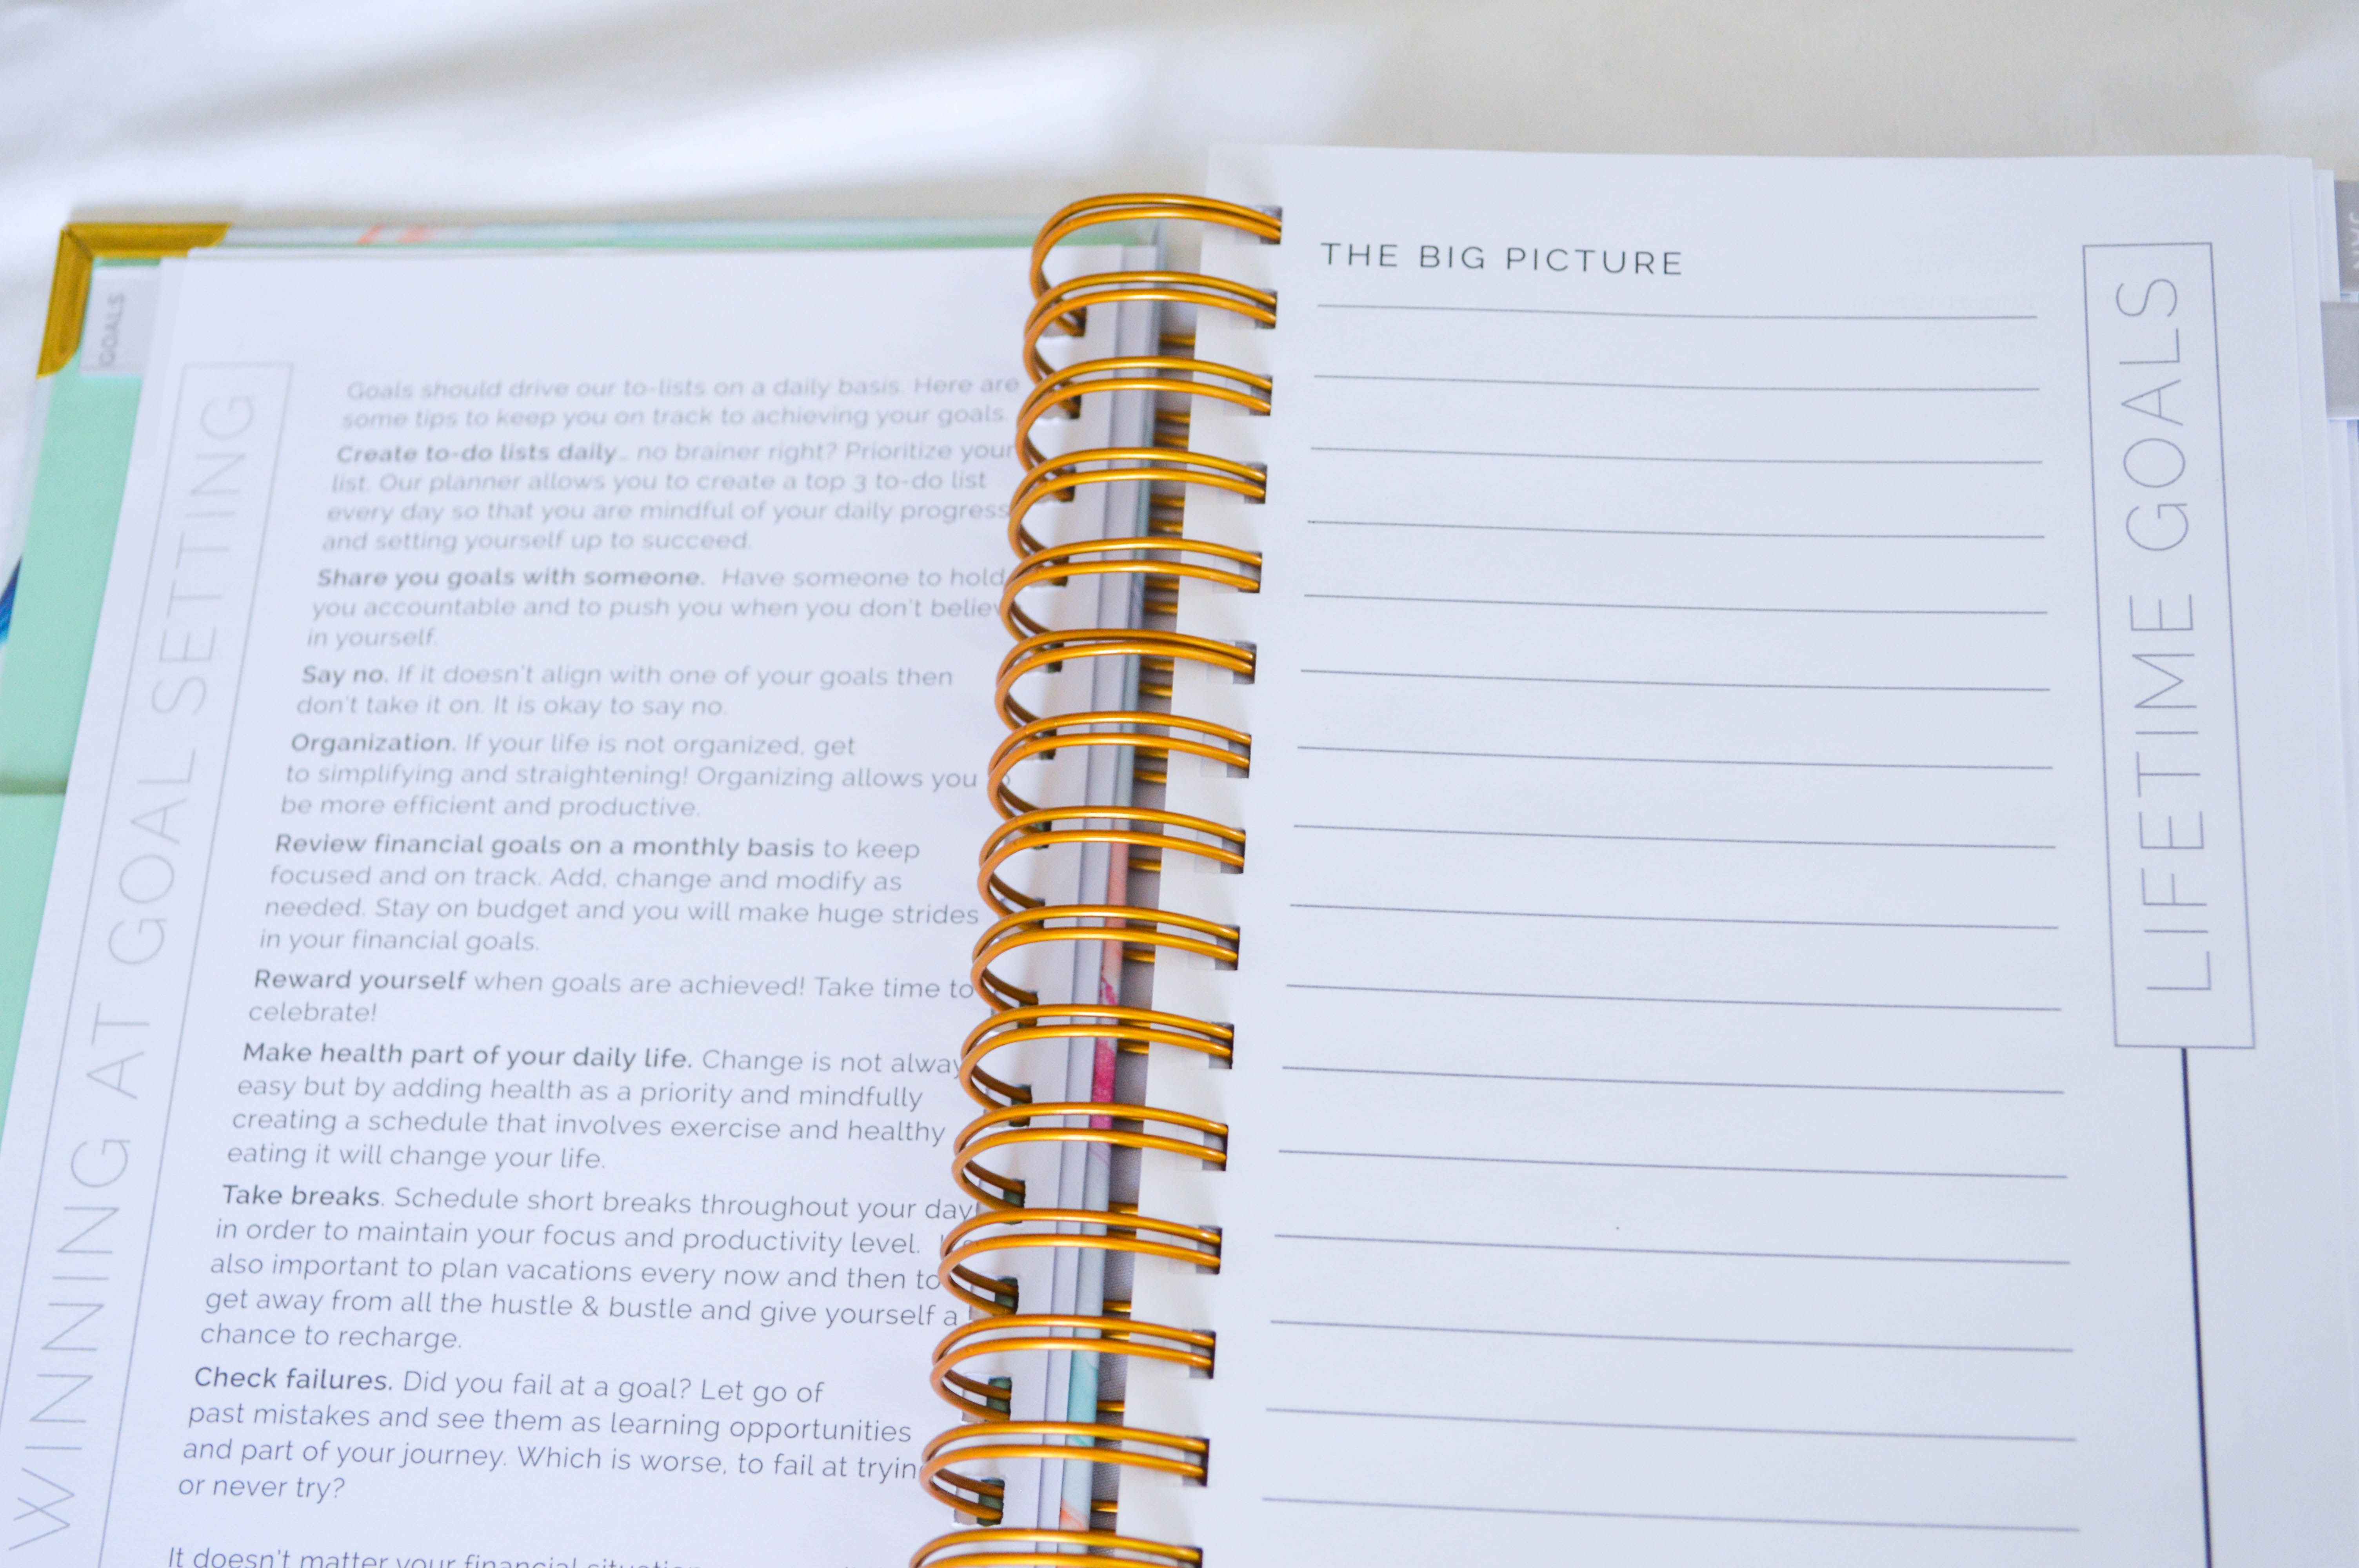 GOALS
WINNING AT GOAL SETTING
Goals should drive our to-lists on a daily basis. Here are
some tips to keep you on track to achieving your goals.
Create to-do lists daily... no brainer right? Prioritize your
list. Our planner allows you to create a top 3 to-do list
every day so that you are mindful of your daily progress
and setting yourself up to succeed.
Share you goals with someone. Have someone to hold
you accountable and to push you when you don't believ
in yourself.
Say no. If it doesn't align with one of your goals then
don't take it on. It is okay to say no.
Organization. If your life is not organized, get
to simplifying and straightening! Organizing allows you
be more efficient and productive.
Review financial goals on a monthly basis to keep
focused and on track. Add, change and modify as
needed. Stay on budget and you will make huge strides
in your financial goals.
Reward yourself when goals are achieved! Take time to
celebrate!
Make health part of your daily life. Change is not alway
easy but by adding health as a priority and mindfully
creating a schedule that involves exercise and healthy
eating it will change your life.
Take breaks. Schedule short breaks throughout your day
in order to maintain your focus and productivity level.
also important to plan vacations every now and then to
get away from all the hustle & bustle and give yourself a
chance to recharge.
Check failures. Did you fail at a goal? Let go of
past mistakes and see them as learning opportunities
and part of your journey. Which is worse, to fail at tryin
or never try?
It doesn't matter your financial
THE BIG PICTURE
LIFETIME GOALS
JAN